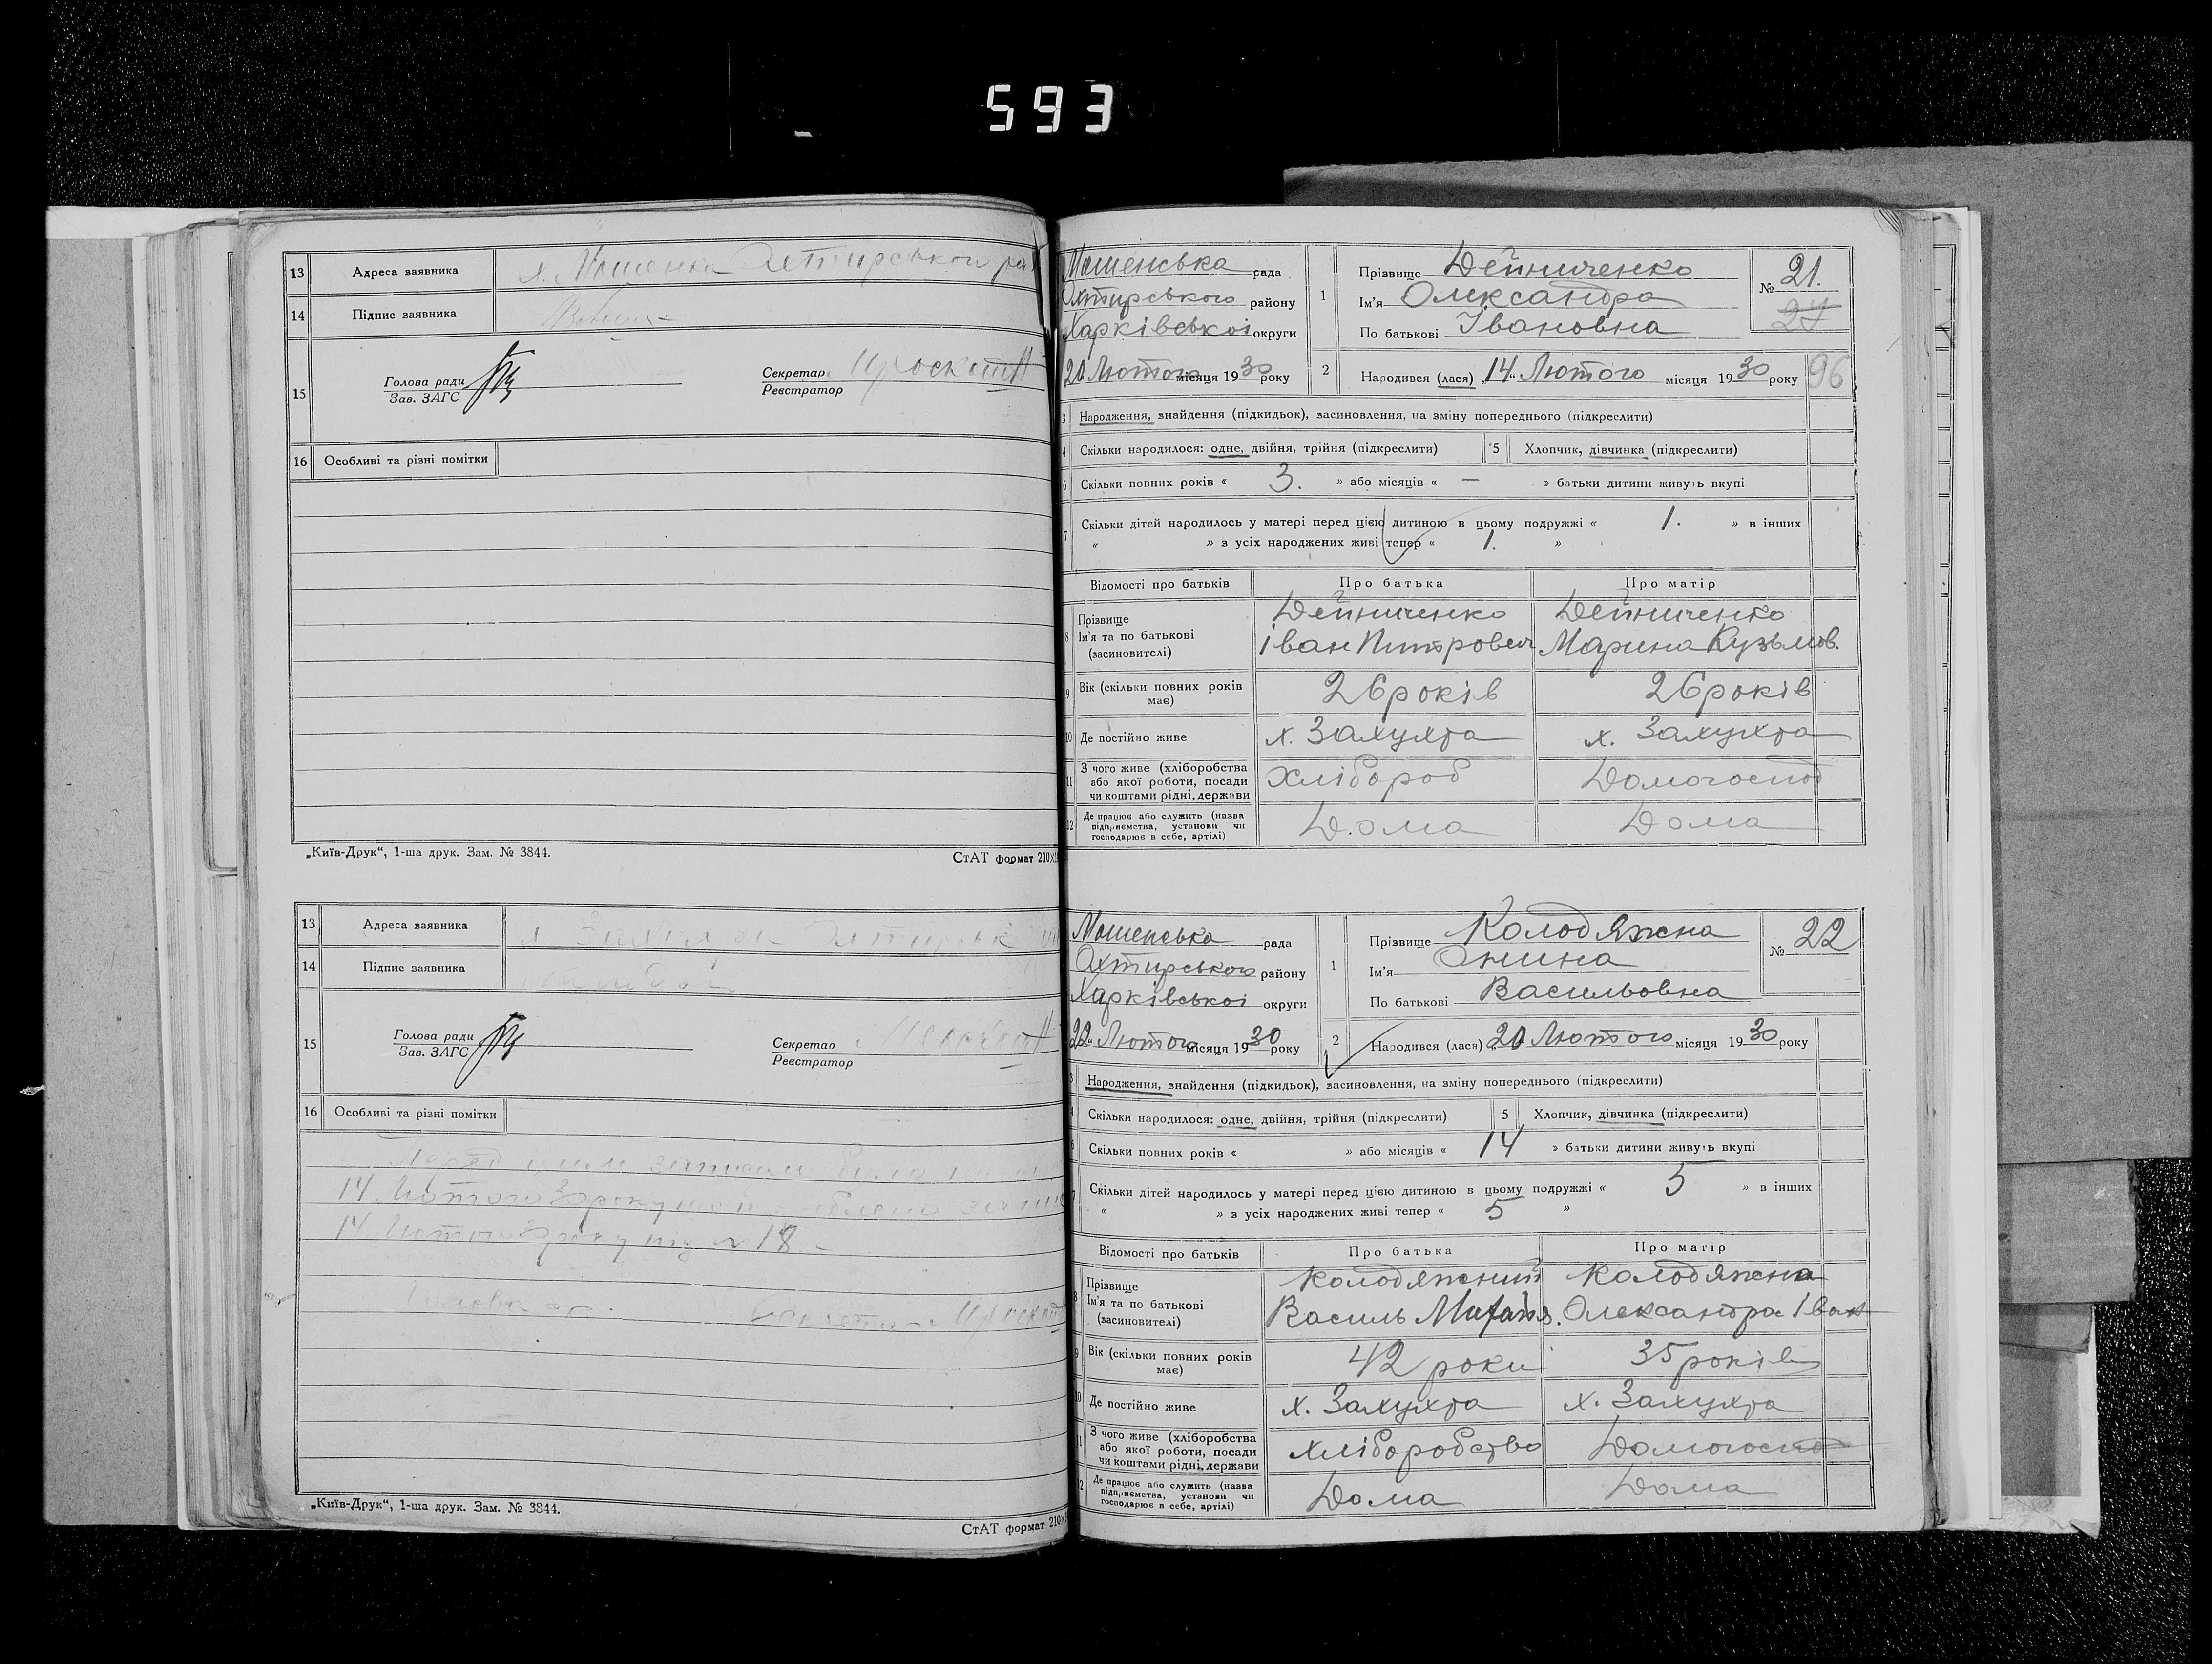 593
13 Адреса заявника х. Мошенка Охтирського рай
14 Підпис заявника
15 Голова ради
Зав. ЗАГС
Секретар
Реєстратор
16 Особливі та різні помітки
„Київ-Друк“, 1-ша друк. Зам. № 3844.
СтАТ формат 210×
13 Адреса заявника х. Охтирськ
14 Підпис заявника
15 Голова ради
Зав. ЗАГС
Секретар
Реєстратор
16 Особливі та різні помітки
Перед цим записом було
14 Лютого 30 року
14 Лютого 30 року під № 18. –
Голова Секретар
„Київ-Друк“, 1-ша друк. Зам. № 3844.
СтАТ формат 210×
Мошенська рада
Охтирського району
Харківської округи
20 Лютого місяця 1930 року
1 Прізвище Дейниченко
Ім'я Олександра
По батькові Івановна
№ 21.
24
2 Народився (лася) „14“ Лютого місяця 1930 року
96
3 Народження, знайдення (підкидьок), засиновлення, на зміну попереднього (підкреслити)
4 Скільки народилося: одне, двійня, трійня (підкреслити) 5 Хлопчик, дівчинка (підкреслити)
6 Скільки повних років « 3. » або місяців « — » батьки дитини живуть вкупі
7 Скільки дітей народилось у матері перед цією дитиною в цьому подружжі « 1. » в інших
« » з усіх народжених живі тепер « 1. »
Відомості про батьків Про батька Про матір
8 Прізвище Дейниченко Дейниченко
Ім'я та по батькові Іван Питрович Марина Кузьмов.
(засновителі)
9 Вік (скільки повних років має) 26 років 26 років
10 Де постійно живе х. Залухта х. Залухта
11 З чого живе (хліборобства або якої роботи, посади чи коштами рідні, держави Хлібороб Домогоспод
12 Де працює або служить (назва підприємства, установи чи господарює в себе, артілі) Дома Дома
Мошенська рада
Охтирського району
Харківської округи
22 Лютого місяця 1930 року
1 Прізвище Колодяжна
Ім'я
По батькові Васильовна
№ 22
2 Народився (лася) „20 Лютого місяця 1930 року
3 Народження, знайдення (підкидьок), засиновлення, на зміну попереднього (підкреслити)
4 Скільки народилося: одне, двійня, трійня (підкреслити) 5 Хлопчик, дівчинка (підкреслити)
6 Скільки повних років « » або місяців « 14 » батьки дитини живуть вкупі
7 Скільки дітей народилось у матері перед цією дитиною в цьому подружжі « 5 » в інших
« » з усіх народжених живі тепер « 5 »
Відомості про батьків Про батька Про матір
8 Прізвище Колодяжний Колодяжна
Ім'я та по батькові Василь Олександра Іван
(засиновителі)
9 Вік (скільки повних років має) 42 роки 35 років
10 Де постійно живе х. Залухта х. Залухта
11 З чого живе (хліборобства або якої роботи, посади чи коштами рідні, держави хліборобство Домогоспо
12 Де працює або служить (назва підприємства, установи чи господарює в себе, артілі) Дома Дома